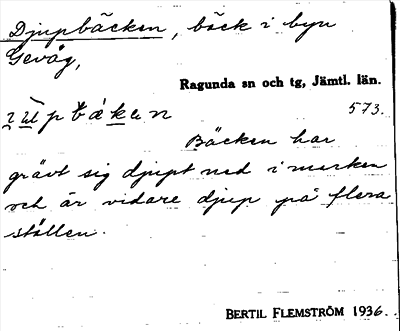 Djupbäcken, bäck i byn
Gevåg,
Ragunda sn och tg, Jämtl. län.
573.
Bäcken har
grävt sig djupt ned i marken
och är vidare djup på flera
ställen.
BERTIL FLEMSTRÖM 1936.